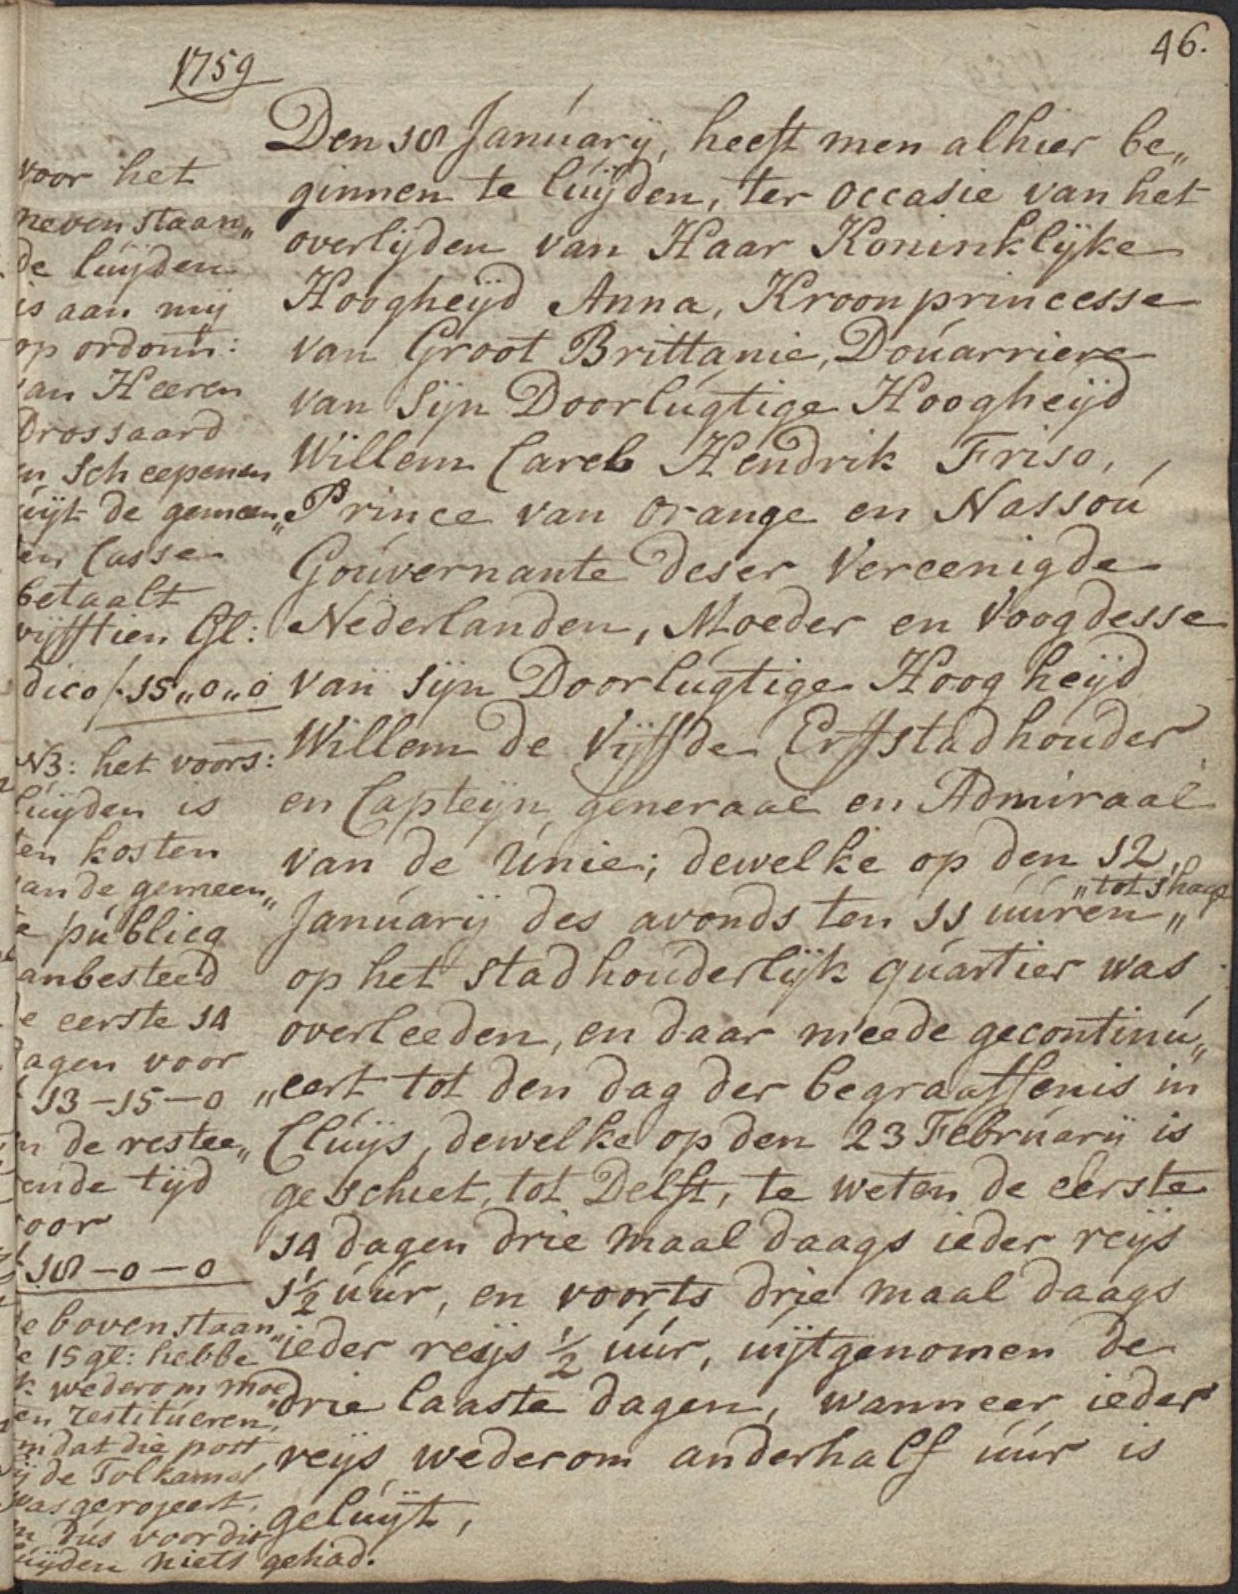 46.
1759
voor het
nevenstaan„
de luijden
is aan mij
op ordonn:
van Heeren
Drossaard
en Scheepenen
uijt de gemeen„
en Casse
betaalt
vijfftien Gl:
dico f. 15„0„0
NB: het voors:
luijden is
ten kosten
van de gemeen„
te publicq
aanbesteed
de eerste 14
dagen voor
f 13-15-0
en de restee„
rende tijd
voor
f 18-0-0
de bovenstaan„
de 15 gl: hebbe
ik wederom moe„
ten restitueren,
om dat die post
bij de Tolkamer
was gerojeert,
en dus voor dit
luijden niets gehad.
Den 18 Januarij, heeft men alhier be„
ginnen te luijden, ter occasie van het
overlijden van Haar Koninklijke
Hoogheijd Anna, Kroonprincesse
van Groot Brittanie, Douarriere
van Sijn Doorlugtige Hoogheijd
Willem Carel Hendrik Friso,
Prince van Orange en Nassou
Gouvernante deser Vereenigde
Nederlanden, Moeder en Voogdesse
van Sijn Doorlugtige Hoogheijd
Willem de Vijffde Erffstadhouder
en Capteijn generaal en Admiraal
van de Unie; dewelke op den 12
„tot s'hage
Januarij des avonds ten 11 uuren „
op het stadhouderlijk quartier was
overleeden, en daar meede gecontinu„
„eert tot den dag der begraaffenis in
Cluijs, dewelke op den 23 Februarij is
geschiet, tot Delft, te weten de eerste
14 dagen drie maal daags ieder reijs
1½ uur, en voorts drie maal daags
ieder reijs ½ uur, uijtgenomen de
drie laaste dagen, wanneer ieder
reijs wederom anderhalf uur is
geluijt,